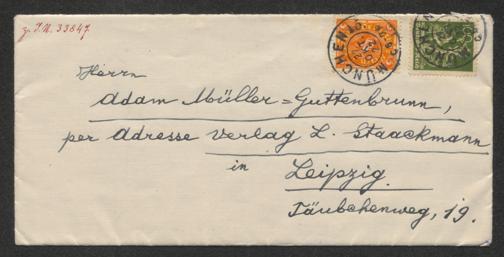 z. I.N. 33647
MÜNCHEN
MÜNCHEN
Herrn
Adam Müller=Guttenbrunn,
per Adresse Verlag L. Staackmann
in
Leipzig.
Täubchenweg, 19.